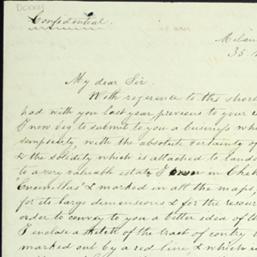 Confidential
My dear Sir
With reference to the short
had with you last year previous to your
I now beg to submit to you a business wh
simplicity, with the absolute certainty of
& the solidity which is attached to lands
to a very valuable estate I own in
& marked in all the maps,
for its large dimensions & for the resour
order to convey to you a better idea of th
I enclose a sketch of the tract of contry
marked out by a red line, & which